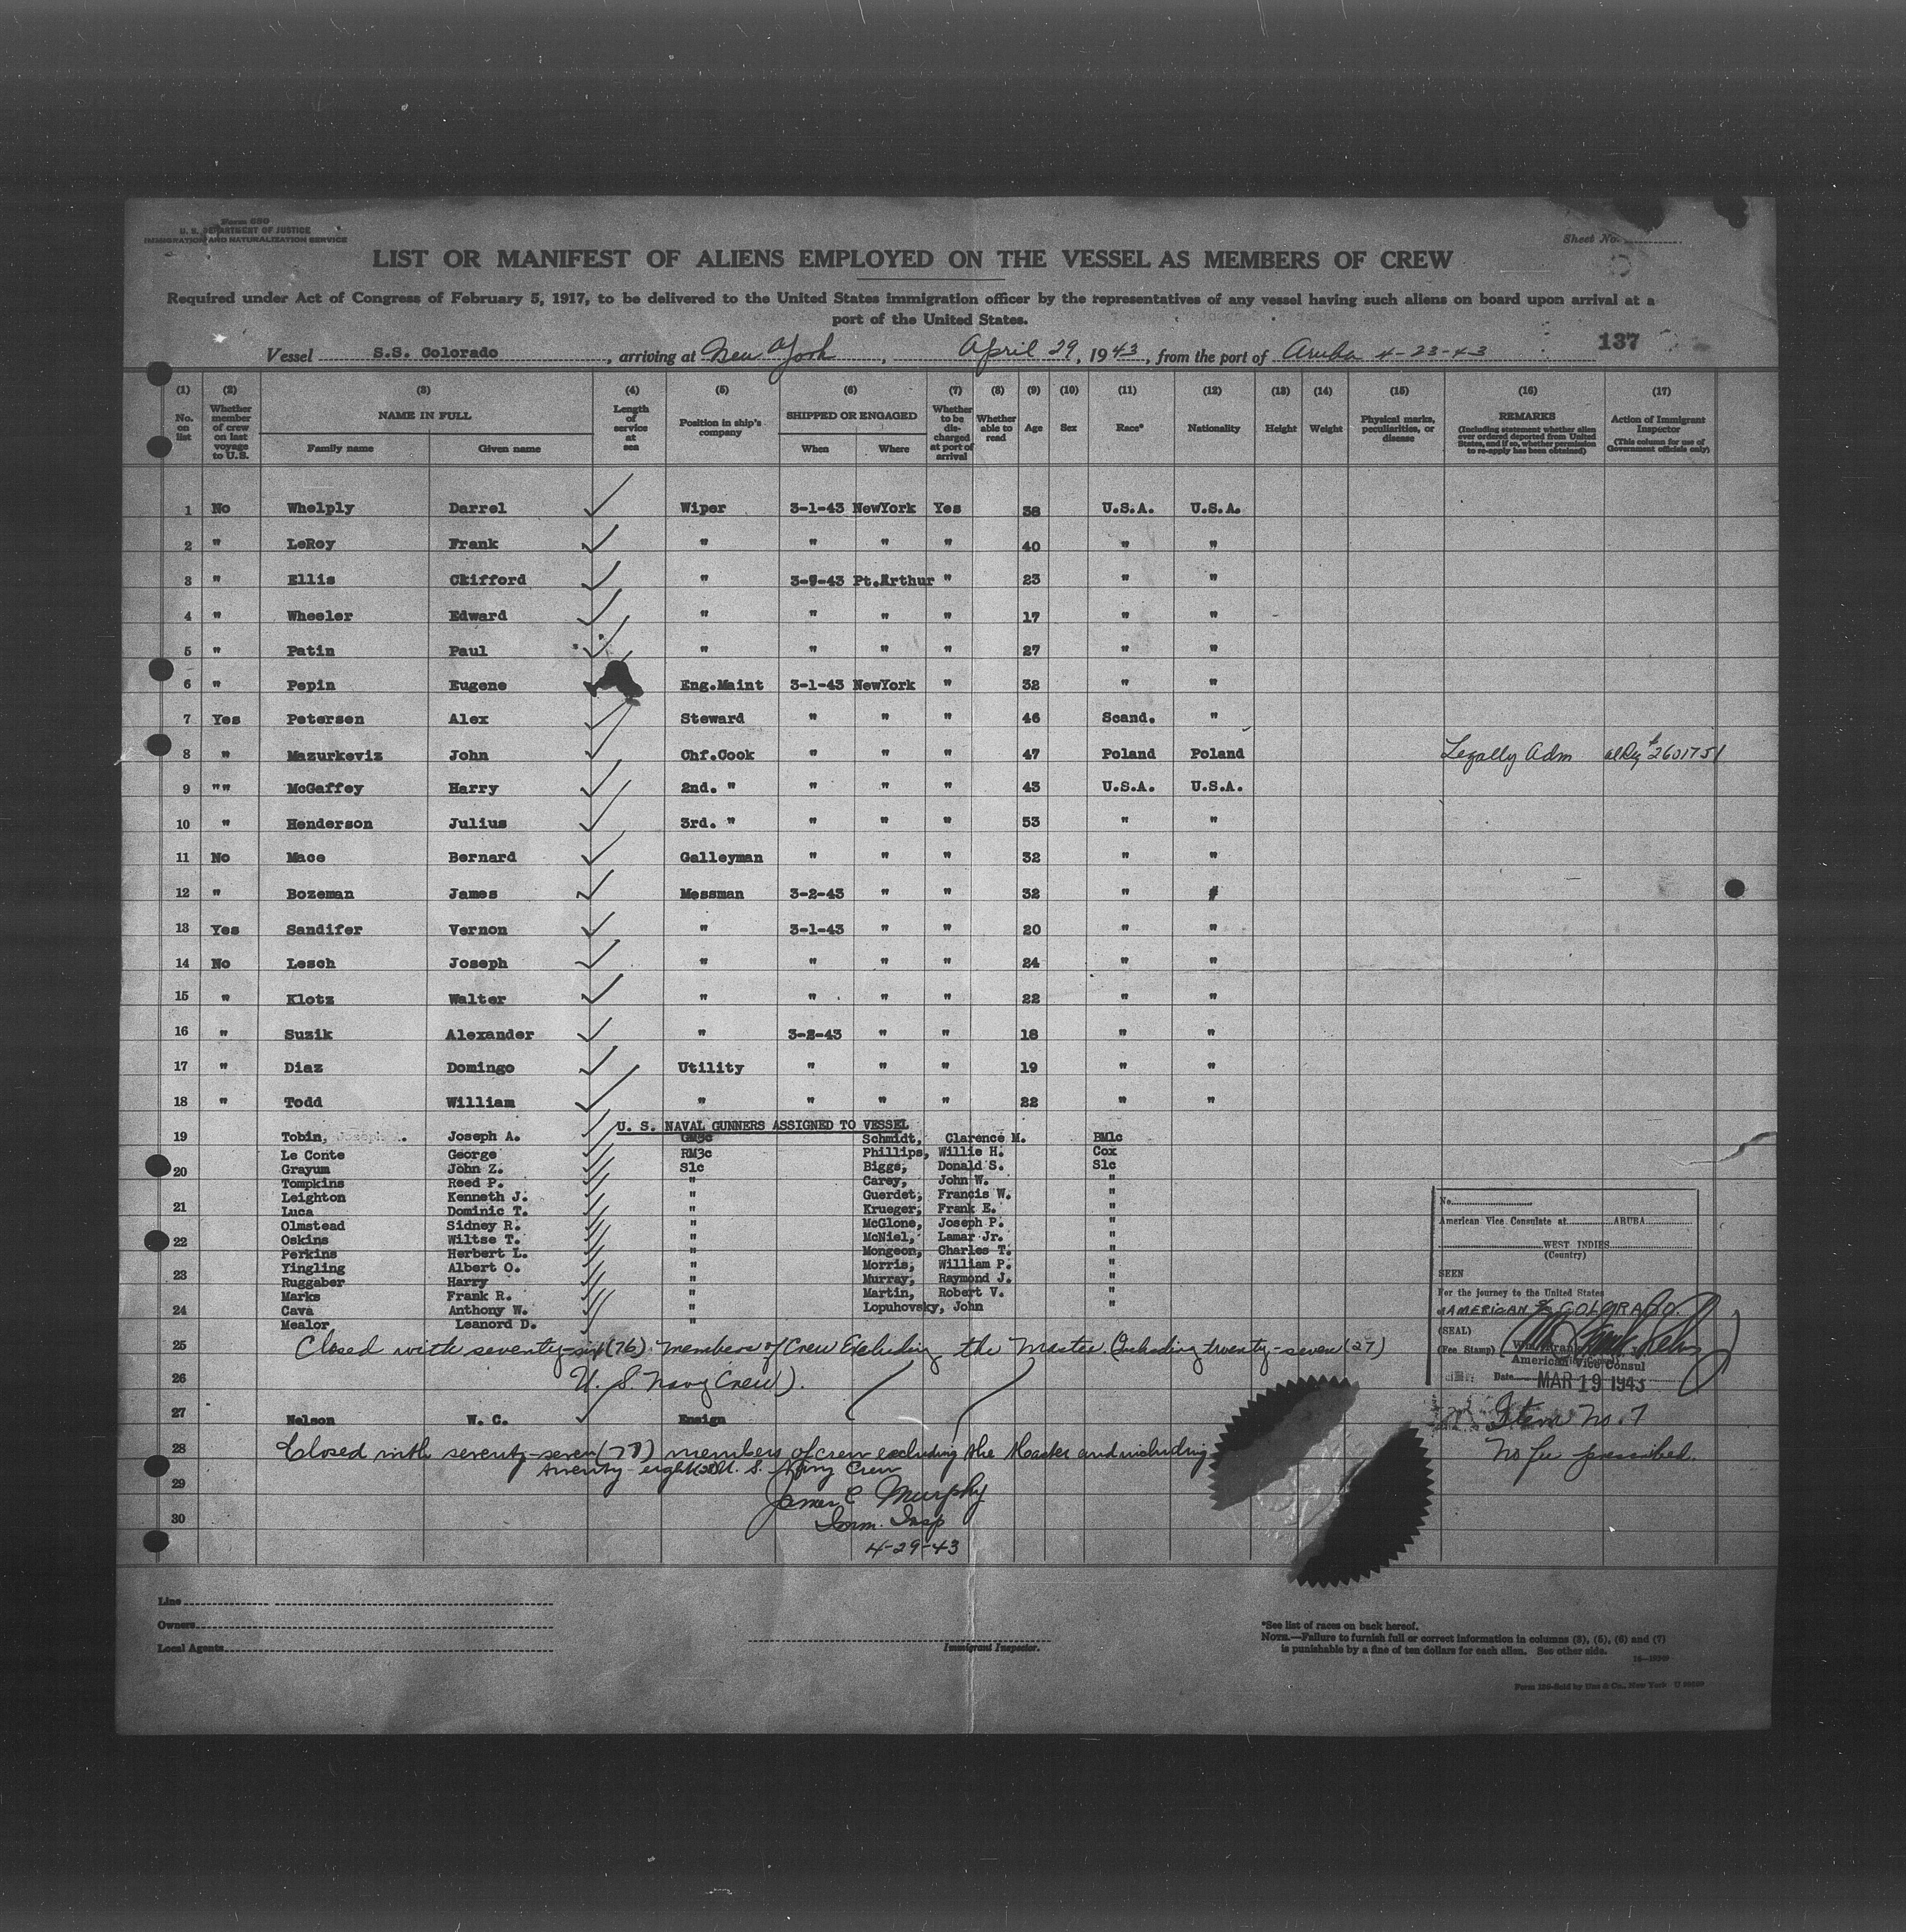 Form 680
U. S. DEPARTMENT OF JUSTICE
IMMIGRATION AND NATURALIZATION SERVICE
Sheet No.
LIST OR MANIFEST OF ALIENS EMPLOYED ON THE VESSEL AS MEMBERS OF CREW
Required under Act of Congress of February 5, 1917, to be delivered to the United States immigration officer by the representatives of any vessel having such aliens on board upon arrival at a
port of the United States.
Vessel S.S. Colorado, arriving at New York, April 29, 1943, from the port of Aruba 4-23-43 137
(1) (2) (3) (4) (5) (6) (7) (8) (9) (10) (11) (12) (13) (14) (15) (16) (17)
No. on list
Whether member of crew on last voyage to U.S.
NAME IN FULL
Family name
Given name
Length of service at sea
Position in ship's company
SHIPPED OR ENGAGED
When
Where
Whether to be discharged at port of arrival
Whether able to read
Age
Sex
Race*
Nationality
Height
Weight
Physical marks, peculiarities, or disease
REMARKS
(Including statement whether alien ever ordered deported from United States, and if so, whether permission to re-apply has been obtained)
Action of Immigrant Inspector
(This column for use of Government officials only)
1 No Whelply Darrel Wiper 3-1-43 NewYork Yes 38 U.S.A. U.S.A.
2 " LeRoy Frank " " " " 40 " "
3 " Ellis Ckifford " 3-9-43 Pt.Arthur " 23 " "
4 " Wheeler Edward " " " " 17 " "
5 " Patin Paul " " " " 27 " "
6 " Pepin Eugene Eng.Maint 3-1-43 NewYork " 32 " "
7 Yes Petersen Alex Steward " " " 46 Scand. "
8 " Mazurkeviz John Chf.Cook " " " 47 Poland Poland Legally Adm 2601751
9 "" McGaffey Harry 2nd. " " " " 43 U.S.A. U.S.A.
10 " Henderson Julius 3rd. " " " " 53 " "
11 No Mace Bernard Galleyman " " " 32 " "
12 " Bozeman James Messman 3-2-43 " " 32 " "
13 Yes Sandifer Vernon " 3-1-43 " " 20 " "
14 No Lesch Joseph " " " " 24 " "
15 " Klotz Walter " " " " 22 " "
16 " Suzik Alexander " 3-2-43 " " 18 " "
17 " Diaz Domingo Utility " " " 19 " "
18 " Todd William " " " " 22 " "
U. S. NAVAL GUNNERS ASSIGNED TO VESSEL
19 Tobin, Joseph A. GM3c Schmidt, Clarence M. BM1c
Le Conte George RM3c Phillips, Willie H. Cox
20 Grayum John Z. S1c Biggs, Donald S. S1c
Tompkins Reed P. " Carey, John W. "
Leighton Kenneth J. " Guerdet, Francis W. "
21 Luca Dominic T. " Krueger, Frank E. "
Olmstead Sidney R. " McGlone, Joseph P. "
22 Oskins Wiltse T. " McNiel, Lamar Jr. "
Perkins Herbert L. " Mongeon, Charles T. "
Yingling Albert O. " Morris, William P. "
23 Ruggaber Harry " Murray, Raymond J. "
Marks Frank R. " Martin, Robert V. "
24 Cava Anthony W. " Lopuhovsky, John "
Mealor Leanord D. "
25 Closed with seventy-six (76) members of Crew Excluding the Master (Including twenty-seven (27)
26 U. S. Navy Crew).
27 Nelson W. C. Ensign
28 Closed with seventy-seven (77) members of crew excluding the Master and including
twenty-eight (28) U. S. Navy Crew
29 James C Murphy
30 Imm. Insp
4-29-43
No.
American Vice Consulate at ARUBA
WEST INDIES
(Country)
SEEN
For the journey to the United States
AMERICAN S/S COLORADO
(SEAL)
(Fee Stamp)
American Vice Consul
Date MAR 19 1943
Item No. 7
No fee prescribed.
Line
Owners
Local Agents
Immigrant Inspector.
*See list of races on back hereof.
NOTE.—Failure to furnish full or correct information in columns (3), (5), (6) and (7)
is punishable by a fine of ten dollars for each alien. See other side.